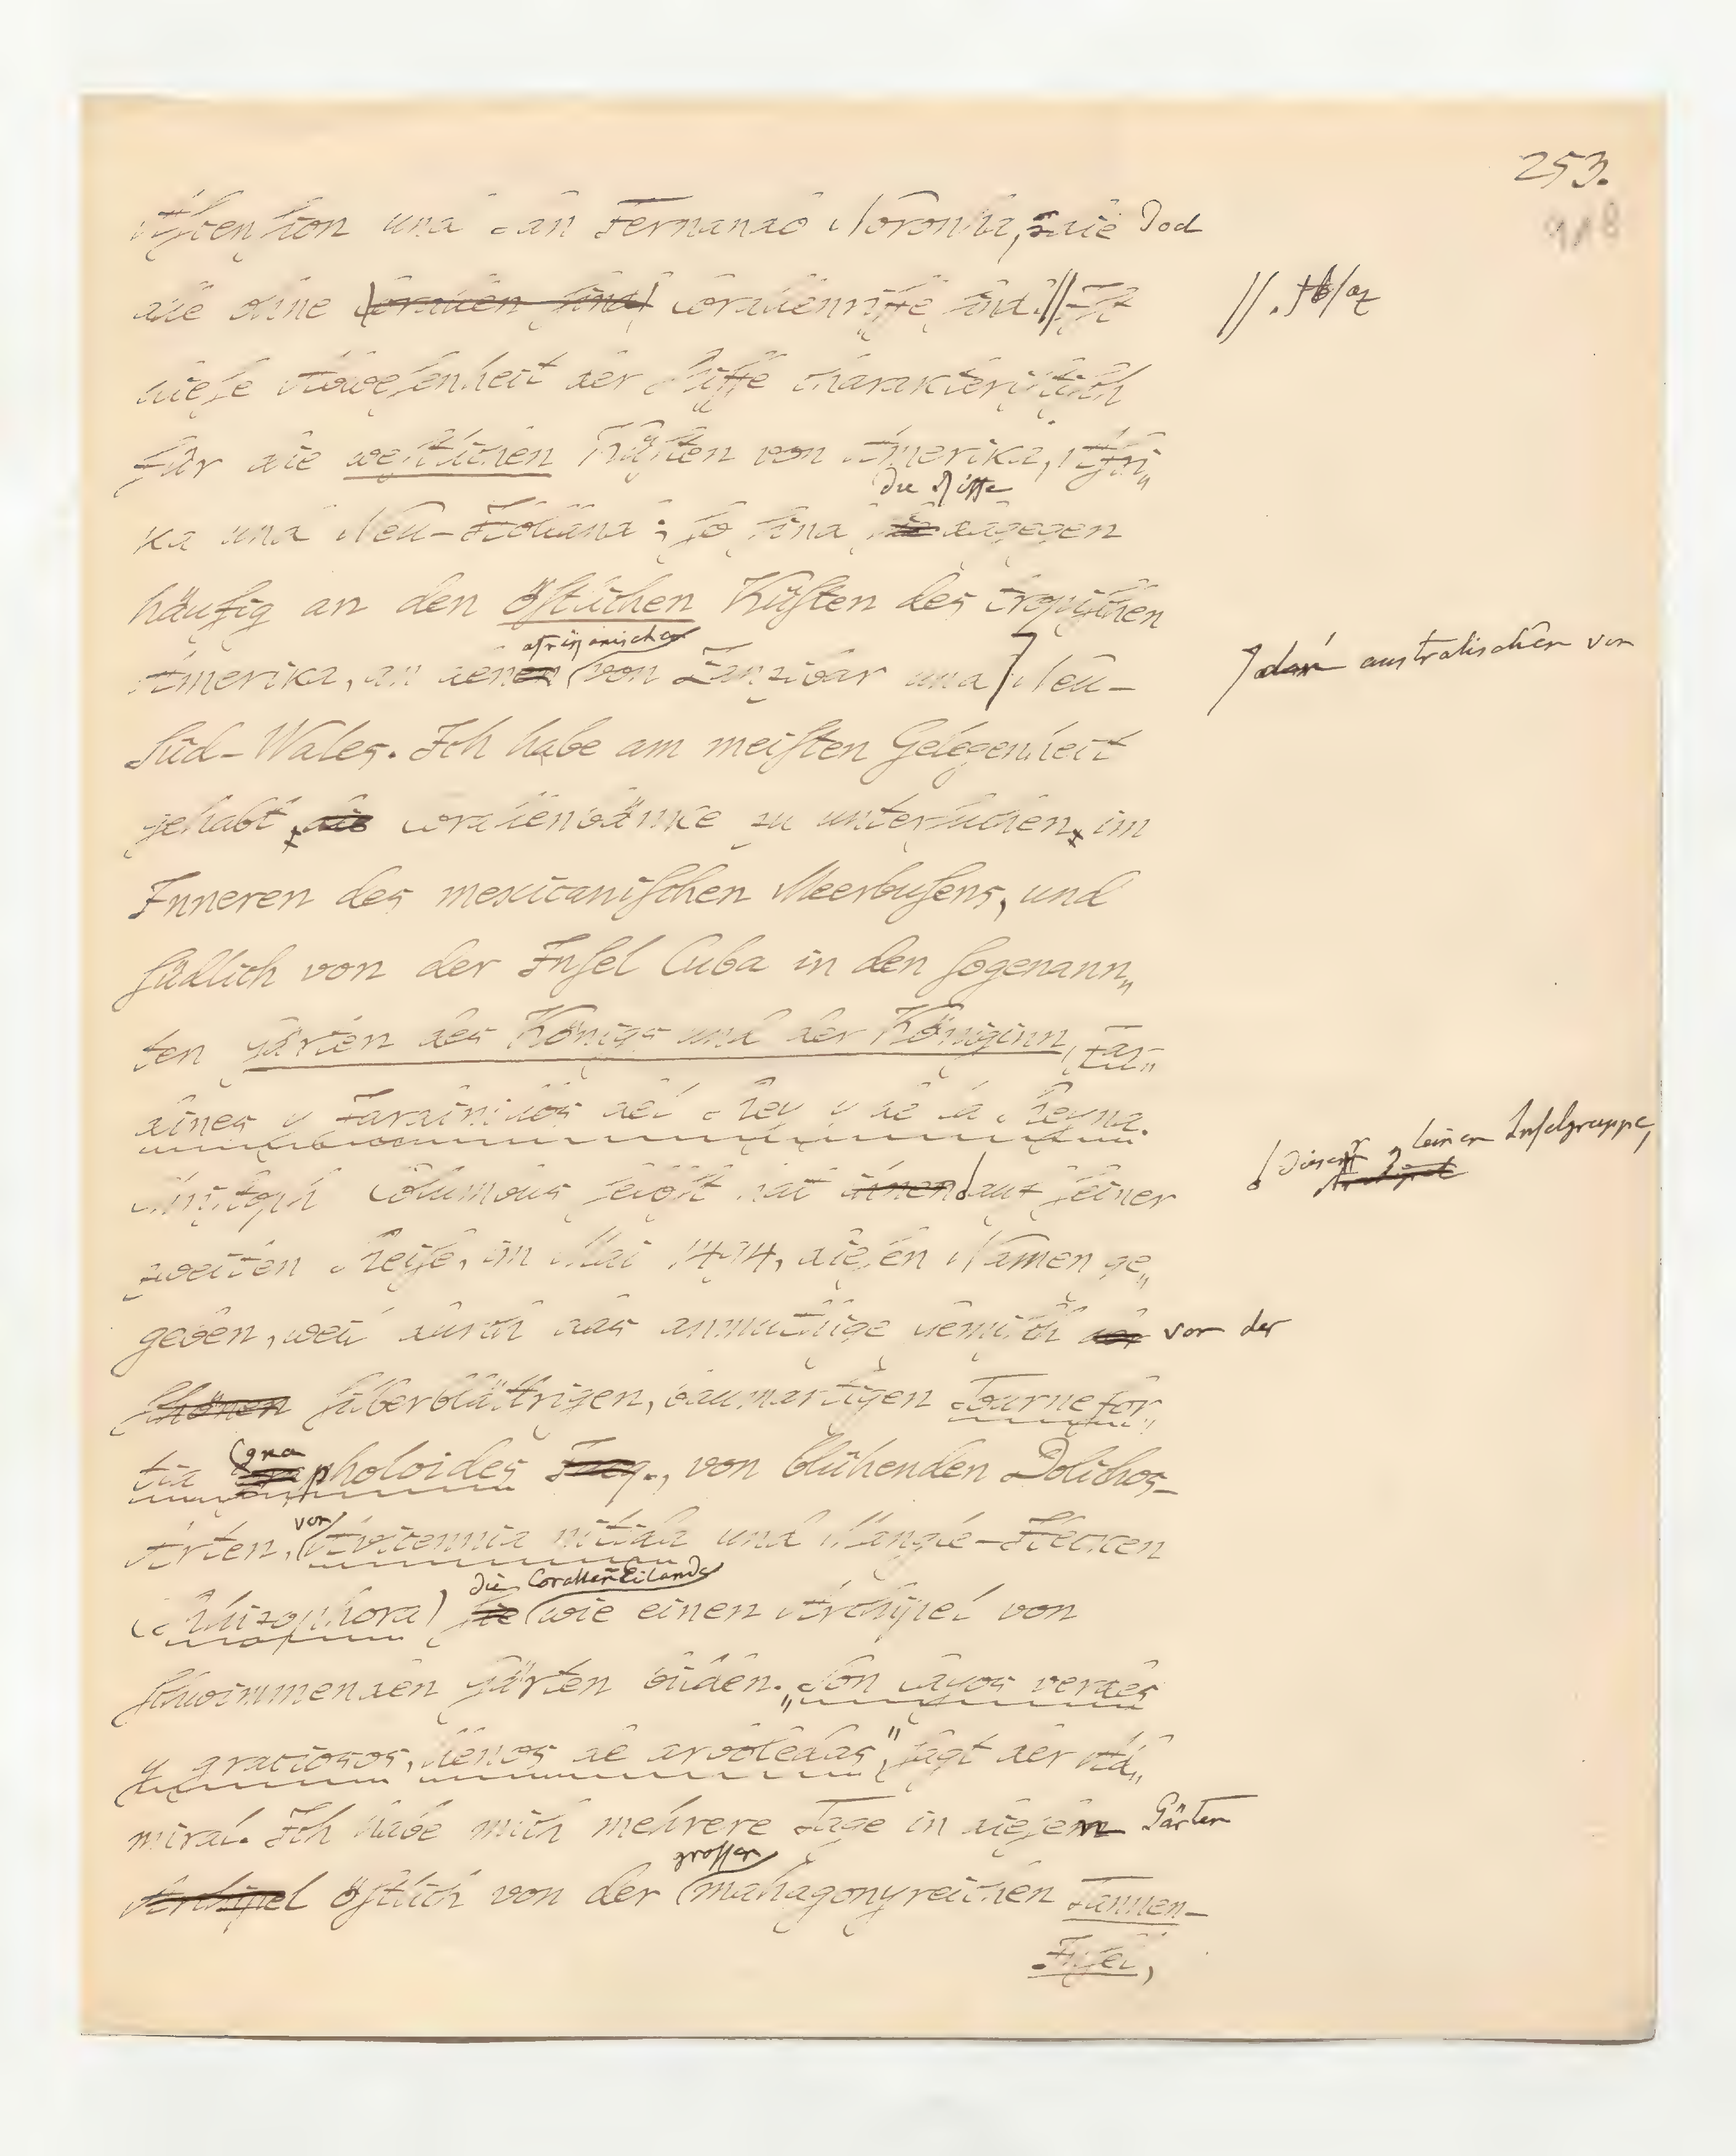 253.
918
Aſcenſion und San Fernando Noronha, die Doch
die ohne Corallen ſind Corallenriffe ſind. // Iſt
dieſe Abweſenheit der Riffe charakteriſtiſch
für die weſtlichen Küſten von Amerika, Afri„
die Riffe
ka und Neu-Holland; ſo ſind ſie dagegen
häufig an den öſtlichen Küſten des tropiſchen
afrikanischen
Amerika, an denen von Zanzibar und Neu-
australischen von
Süd-Wales. Ich habe am meiſten Gelegenheit
gehabt, die Corallenbänke zu unterſuchen, im
Inneren des mexicaniſchen Meerbuſens, und
ſüdlich von der Inſel Cuba in den ſogenann„
ten Gärten des Königs und der Königinn, Jar„
dines y Jardinillos del Rey y de la Reyna.
Chriſtoph Columbus ſelbſt hat ihnen auf ſeiner
Dieser kleinen Inſelgruppe,
zweiten Reiſe, im Mai 1494, dieſen Namen ge„
geben, weil durch das anmuthige Gemiſch der von der
ſchönen ſilberblättrigen, baumartigen Tournefor„
gna
tia pholoides Jacq., von blühenden Dolichos-
von
Arten, Avicennia nitida und Mangle-Hecken
die CorallenEilande
(Rhizophora) ſie wie einen Archipel von
ſchwimmenden Gärten bilden. „Son cayos verdes
y graciosos, llenos de arboledas", ſagt der Ad„
miral. Ich habe mich mehrere Tage in dieſem Gärten
groſſen
Archipel öſtlich von der mahagonyreichen Tannen-
Inſel,